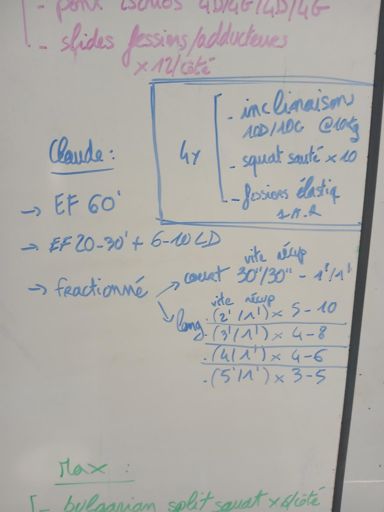 - pont ischios 4D/4G/4D/4G
- slides fessiers/adducteurs
x 12/côté
4x
- inclinaison
10D/10G @10kg
- squat sauté x 10
- fessiers élastiq
Claude :
→ EF 60'
→ EF 20-30' + 6-10 LD
→ fractionné
vite récup
court 30"/30" - 1'/1'
vite récup
long . (2'/1') x 5-10
. (3'/1') x 4-8
. (4'/1') x 4-6
. (5'/1') x 3-5
Max :
- bulgarian split squat x 6/côté